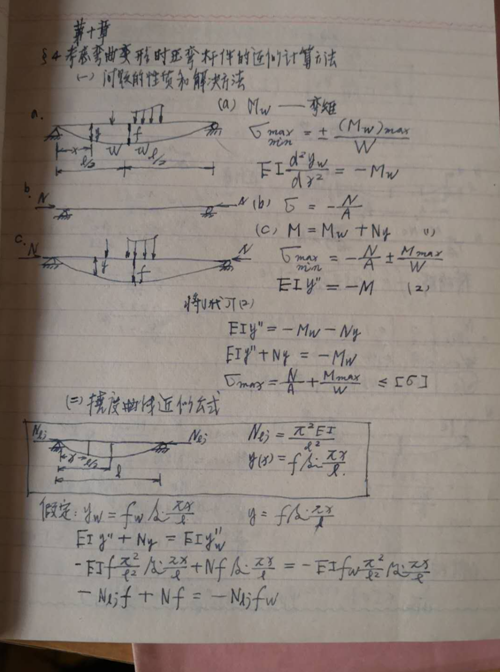 第十章
§4 考虑弯曲变形时压弯杆件的近似计算方法
(一) 问题的性质和解决方法
a.
x
f
W
W
l/2
l/2
(a) Mw — 弯矩
σ max min = ± (Mw)max / W
EI d²yw / dx² = -Mw
b.
N
N
(b) σ = -N/A
(c) M = Mw + Ny (1)
c.
N
N
f
σ max min = -N/A ± Mmax/W
EIy'' = -M (2)
将(1)代入(2)
EIy'' = -Mw - Ny
EIy'' + Ny = -Mw
σmax = N/A + Mmax/W ≤ [σ]
(二) 挠度曲线近似公式
Nlj
Nlj
x
l/2
l
Nlj = π²EI / l²
y(x) = f sin πx/l
假定: yw = fw sin πx/l y = f sin πx/l
EIy'' + Ny = EIyw''
-EIf π²/l² sin πx/l + Nf sin πx/l = -EIfw π²/l² sin πx/l
-Nljf + Nf = -Nljfw